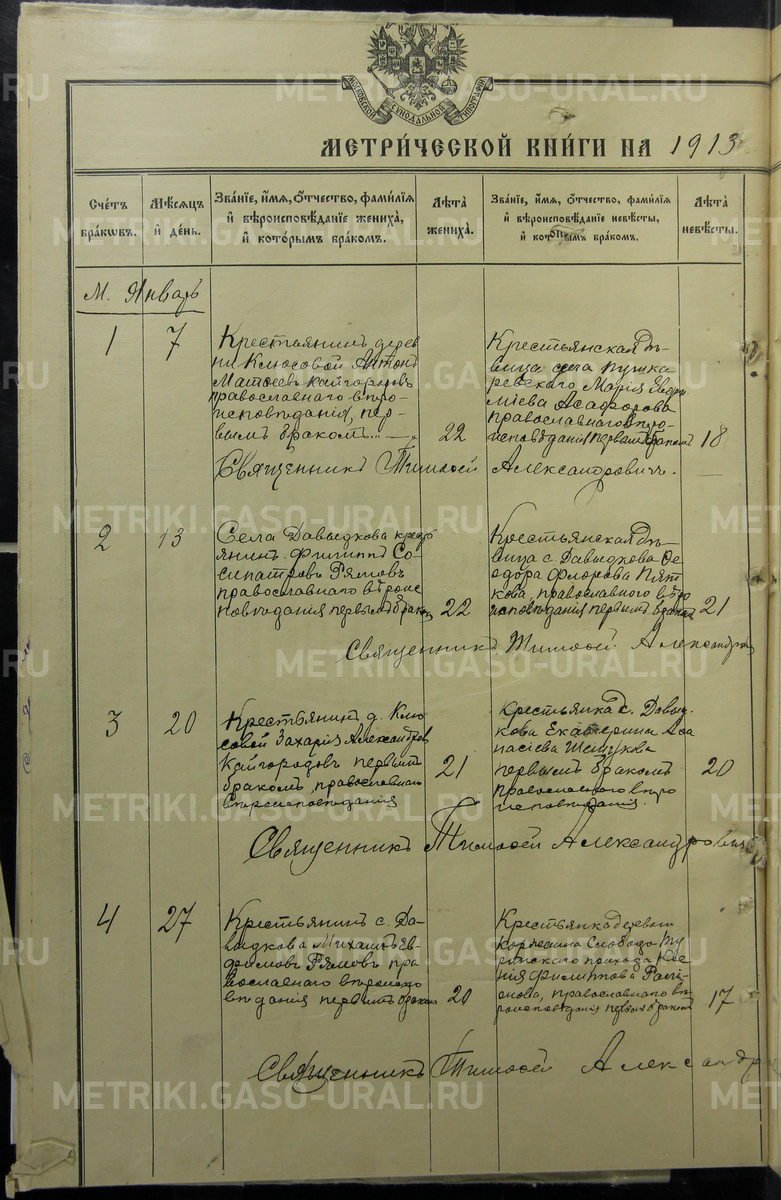 МОСКОВСКОЙ СѴНОДАЛЬНОЙ ТИПОГРАФІИ
МЕТРИ́ЧЕСКОЙ КНИ́ГИ НА 1913
Сче́тъ бра́ковъ.
Мѣ́сяцъ и҆ де́нь.
Зва́нїе, и҆́мѧ, ѻ҆́тчество, фами́лїѧ
и҆ вѣроисповѣ́данїе жениха̀,
и҆ кото́рымъ бра́комъ.
Лѣ́та жениха̀.
Зва́нїе, и҆́мѧ, ѻ҆́тчество, фами́лїѧ
и҆ вѣроисповѣ́данїе невѣ́сты,
и҆ кото́рымъ бра́комъ.
Лѣ́та невѣ́сты.
М. Январь
1
7
Крестьянинъ дерев
ни Клюсовой Антонъ
Матѳеевъ Кайгородовъ
православнаго вѣро-
исповѣданія, пер-
вымъ бракомъ
22
Крестьянская дѣ-
вица села Пушка
ревскаго Марія Евфи
міева Асафорова
православнаго вѣро-
исповѣданія первымъ бракомъ
18
Священникъ Тимоѳей Александровичъ.
2
13
Села Давыдкова кресть
янинъ Филиппъ Со-
сипатровъ Рямовъ
православнаго вѣроис
повѣданія первымъ бракомъ
22
Крестьянская дѣ-
вица с. Давыдкова Ѳе
одора Флорова Пят
кова, православнаго вѣро
исповѣданія первымъ бракомъ
21
Священникъ Тимоѳей Александров
3
20
Крестьянинъ д. Клю
совой Захарія Александровъ
Кайгородовъ первымъ
бракомъ, православнаго
вѣроисповѣданія
21
Крестьянка с. Давыд
кова Екатерина Аѳа
насіева
первымъ бракомъ
православнаго вѣро
исповѣданія.
20
Священникъ Тимоѳей Александрович
4
27
Крестьянинъ с. Да-
выдкова Михаилъ Ев-
фимовъ Рямовъ пра
вославнаго вѣроиспо
вѣданія первымъ бракомъ
20
Крестьянка деревни
Слободо-Ту
ринскаго прихода
нія Филиппова
православнаго вѣ
роисповѣданія первымъ бракомъ
17
Священникъ Тимоѳей Александр
METRIKI.GASO-URAL.RU